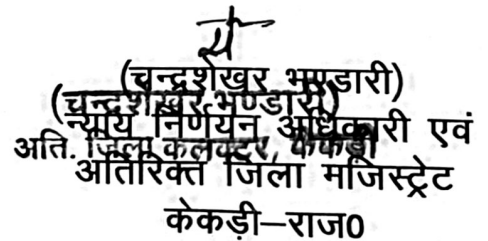 (चन्द्रशेखर भण्डारी)
(चन्द्रशेखर भण्डारी)
न्याय निर्णयन अधिकारी एवं
अति. जिला कलक्टर, केकड़ी
अतिरिक्त जिला मजिस्ट्रेट
केकड़ी–राज0